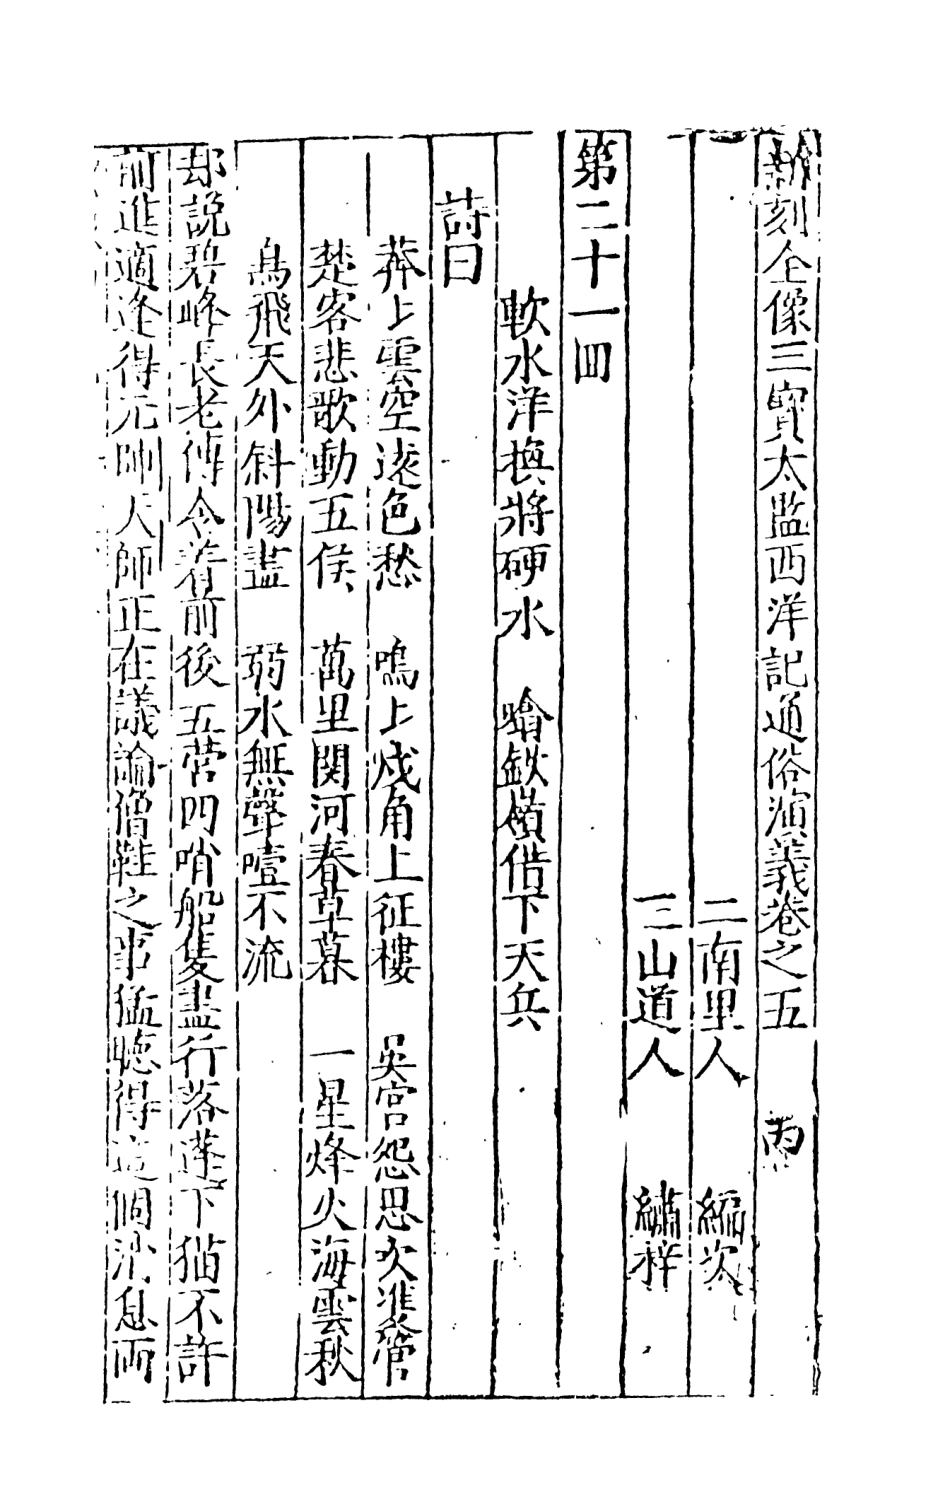 新刻全像三寶太監西洋記通俗演義卷之五　丙
二南里人　編次
三山道人　繡梓
第二十一回
軟水洋換將硬水　噏鉄嶺借下天兵
詩曰
莽〻雲空遠色愁　嗚〻戍角上征樓　吳宮怨思吹雙管
楚客悲歌動五侯　萬里関河春草暮　一星烽火海雲秋
鳥飛天外斜陽盡　弱水無聲噎不流
却說碧峰長老傳令着前後五營四哨船隻盡行落篷下猫不許
前進適逢得元帥天師正在議論僧鞋之事猛聽得這個消息両